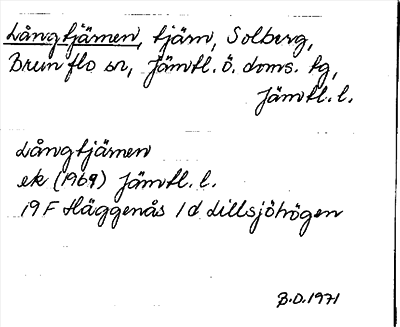 Långtjärnen, tjärn, Solberg,
Brunflo sn, Jämtl. ö. doms. tg,
Jämtl. l.
Långtjärnen
ek (1969) Jämtl. l.
19F Häggenås 1d Lillsjöhögen
B.D. 1971